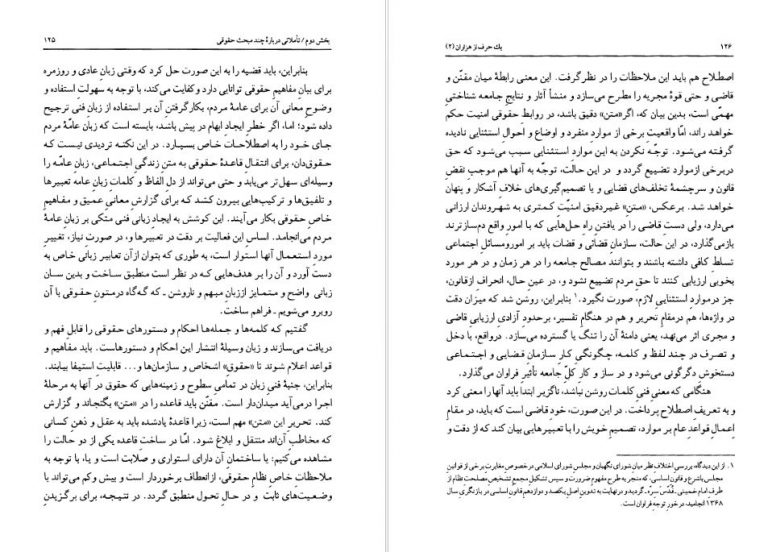 بخش دوم / تأملاتی دربارهٔ چند مبحث حقوقی ۱۲۵
بنابراین، باید قضیه را به این صورت حل کرد که وقتی زبان عادی و روزمره
برای بیان مفاهیم حقوقی توانایی دارد و کفایت می‌کند، با توجه به سهولت استفاده و
وضوح معانی آن برای عامهٔ مردم، بکار گرفتن آن بر استفاده از زبان فنی ترجیح
داده شود؛ اما، اگر خطر ایجاد ابهام در پیش باشد، بایسته است که زبان عامّهٔ مردم
جای خود را به اصطلاحات خاص بسپارد. در این نکته تردیدی نیست که
حقوق‌دان، برای انتقال قاعدهٔ حقوقی به متن زندگی اجتماعی، زبان عامّه را
وسیله‌ای سهل‌تر می‌یابد و حتی می‌تواند از دل الفاظ و کلمات زبان عامه تعبیرها
و تلفیق‌ها و ترکیب‌هایی بیرون کشد که برای گزارش معانی عمیق و مفاهیم
خاص حقوقی بکار می‌آیند. این کوشش به ایجاد زبانی فنی متکی بر زبان عامّهٔ
مردم می‌انجامد. اساس این فعالیت بر دقت در تعبیرها و، در صورت نیاز، تغییر
مورد استعمال آنها استوار است، به طوری که بتوان از آن تعابیر زبانی خاص به
دست آورد و آن را بر هدف‌هایی که در نظر است منطبق ساخت و بدین سان
زبانی واضح و متمایز از زبان مبهم و ناروشن ـ که گاه در متون حقوقی با آن
روبرو می‌شویم ـ فراهم ساخت.
گفتیم که کلمه‌ها و جمله‌ها احکام و دستورهای حقوقی را قابل فهم و
دریافت می‌سازند و زبان وسیلهٔ انتشار این احکام و دستورهاست. باید مفاهیم و
قواعد اعلام شوند تا «حقوق» اشخاص و سازمان‌ها و... قابلیت استیفا بیابند.
بنابراین، جنبهٔ فنی زبان در تمامی سطوح و زمینه‌هایی که حقوق در آنها به مرحلهٔ
اجرا درمی‌آید میدان‌دار است. مقنّن باید قاعده را در «متن» بگنجاند و گزارش
کند. تحریر این «متن» مهم است، زیرا قاعدهٔ یادشده باید به عقل و ذهن کسانی
که مخاطب آن‌اند منتقل و ابلاغ شود. امّا در ساخت قاعده یکی از دو حالت را
مشاهده می‌کنیم: یا ساختمان آن دارای استواری و صلابت است و یا، با توجه به
ملاحظات خاص نظام حقوقی، از انعطاف برخوردار است و بیش و کم می‌تواند با
وضعیت‌های ثابت و در حال تحول منطبق گردد. در نتیجه، برای برگزیدن
۱۲۶ یک حرف از هزاران (۲)
اصطلاح هم باید این ملاحظات را در نظر گرفت. این معنی رابطهٔ میان مقنّن و
قاضی و حتی قوهٔ مجریه را مطرح می‌سازد و منشأ آثار و نتایج جامعه شناختی
مهمّی است، بدین بیان که، اگر «متن» دقیق باشد، در روابط حقوقی امنیت حکم
خواهد راند، امّا واقعیت برخی از موارد منفرد و اوضاع و احوال استثنایی نادیده
گرفته می‌شود. توجّه نکردن به این موارد استثنایی سبب می‌شود که حق
در برخی از موارد تضییع گردد و در این حالت، توجّه به آنها هم موجب نقض
قانون و سرچشمهٔ تخلف‌های قضایی و یا تصمیم‌گیری‌های خلاف آشکار و پنهان
خواهد شد. برعکس، «متن» غیردقیق امنیّت کمتری به شهروندان ارزانی
می‌دارد، ولی دست قاضی را در یافتن راه حل‌هایی که با امور واقع دم‌سازترند
بازمی‌گذارد، در این حالت، سازمان قضائی و قضات باید بر امور و مسائل اجتماعی
تسلط کافی داشته باشند و بتوانند مصالح جامعه را در هر زمان و در هر مورد
بخوبی ارزیابی کنند تا حق مردم تضییع نشود و، در عین حال، انحراف از قانون،
جز در موارد استثنایی لازم، صورت نگیرد.۱ بنابراین، روشن شد که میزان دقت
در واژه‌ها، هم در مقام تحریر و هم در هنگام تفسیر، بر حدود آزادی ارزیابی قاضی
و مجری اثر می‌نهد، یعنی دامنهٔ آن را تنگ یا گسترده می‌سازد. در واقع، با دخل
و تصرف در چند لفظ و کلمه، چگونگی کار سازمان قضایی و اجتماعی
دستخوش دگرگونی می‌شود و در ساز و کار کلّ جامعه تأثیر فراوان می‌گذارد.
هنگامی که معنی فنی کلمات روشن نباشد، ناگزیر ابتدا باید آنها را معنی کرد
و به تعریف اصطلاح پرداخت. در این صورت، خود قاضی است که باید، در مقام
اِعمال قواعد عام بر موارد، تصمیم خویش را با تعبیرهایی بیان کند که از دقت و
۱. از این دیدگاه، بررسی اختلاف نظر میان شورای نگهبان و مجلس شورای اسلامی در خصوص مغایرت برخی از قوانین
مجلس با شرع و قانون اساسی، که منجر به طرح مفهوم ضرورت و سپس تشکیل مجمع تشخیص مصلحت نظام از
طرف امام خمینی، قُدّسَ سِرّه، گردید و در نهایت به تدوین اصل یکصد و دوازدهم قانون اساسی در بازنگری سال
۱۳۶۸ انجامید، در خور توجه فراوان است.